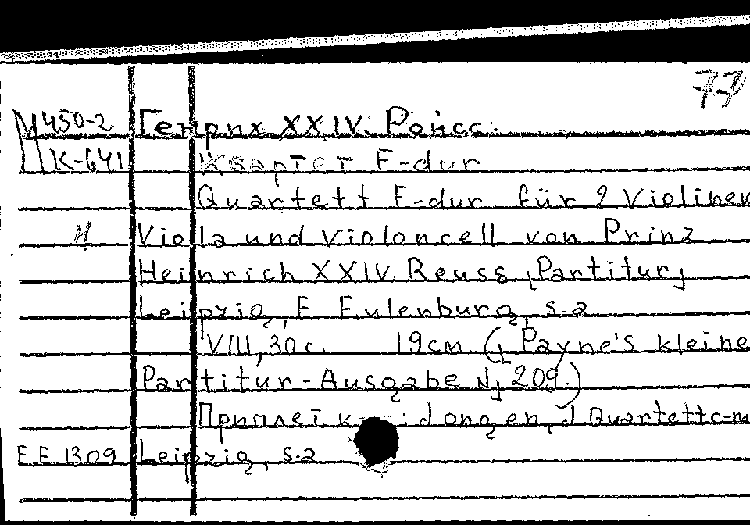 77
М450-2 Генрих XXIV. Ройсс.
К-641 Квартет F-dur
Quartett F-dur für 2 Violinen
Н Viola und Violoncell von Prinz
Heinrich XXIV Reuss, Partitur,
Leipzig, E. Eulenburg, s.a
VIII, 30 с. 19 см (, Payne's kleine
Partitur-Ausgabe N, 209.)
Приплет к: Quartett c-m
E.E. 1309 Leipzig, s.a